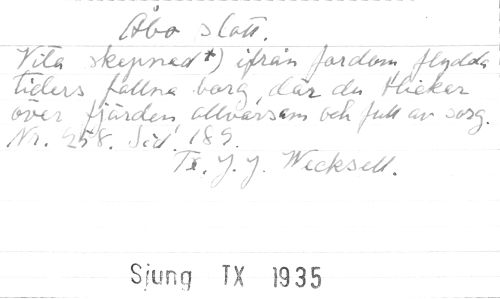 Åbo slott.
Vita skepnad *) ifrån fordom flydda
tiders fallna borg, där du blickar
över fjärden allvarsam och full av sorg.
Nr. 258. Sid. 189.
Tx. J. J. Wecksell.
Sjung TX 1935